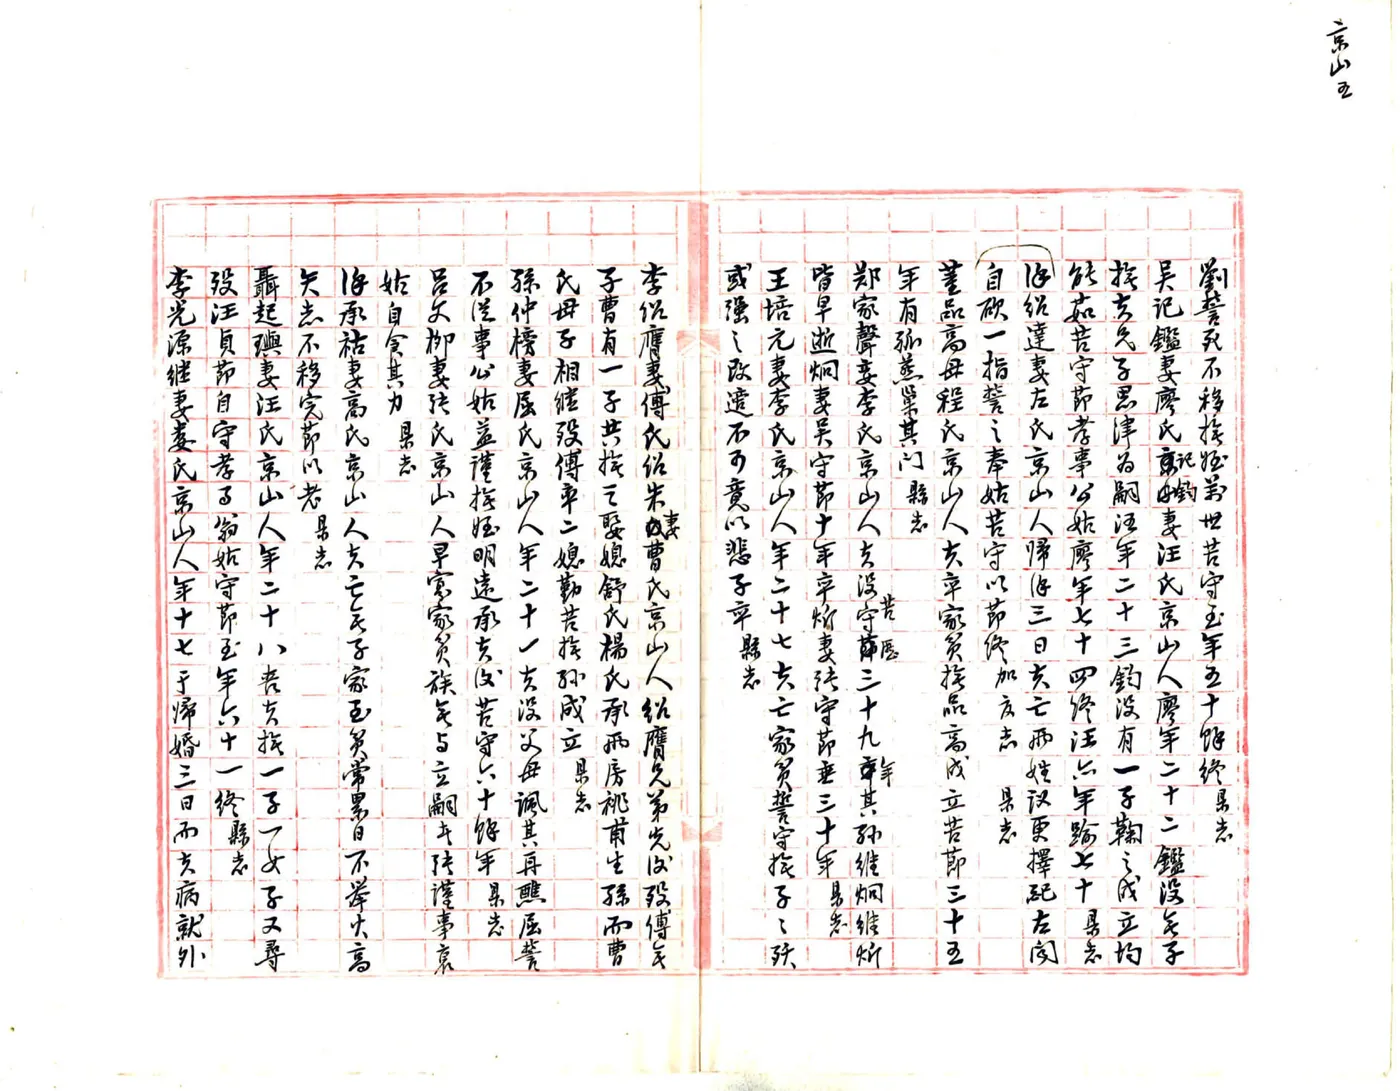 京山五
劉誓死不移撫姪萬世苦守至年五十餘終 縣志
吳記鑑妻廖氏記鈞妻汪氏京山人廖年二十二鑑没無子
撫夫兄子思津为嗣汪年二十三鈞没有一子鞠之成立均
能茹苦守節孝事公姑廖年七十四終汪六年踰七十 縣志
徐紹達妻左氏京山人歸徐三日夫亡兩姓议更擇配左闻
自砍一指誓之奉姑苦守以節終加友志 縣志
董品高母程氏京山人夫卒家貧撫品高成立苦節三十五
年有孤燕巢其门 縣志
郑家聲妻李氏京山人夫没守苦節歷三十九年其孫維炯維炘
皆早逝炯妻吴守節十年卒炘妻張守節垂三十年 縣志
王培元妻李氏京山人年二十七夫亡家貧誓守撫子之殀
或强之改適不可竟以悲子卒 縣志
李紹膺妻傅氏紹朱妻曹氏京山人紹膺兄弟先後殁傅無
子曹有一子共撫之娶媳舒氏楊氏承兩房祧甫生孫而曹
氏母子相继殁傅率二媳勤苦撫孙成立 縣志
孫仲榜妻屈氏京山人年二十一夫没父母諷其再醮屈誓
不从事公姑益謹撫姪明遠承夫後苦守六十餘年 縣志
吕文柳妻張氏京山人早寡家貧族無与立嗣者張謹事衰
姑自食其力 縣志
徐承祜妻高氏京山人夫亡無子家至貧常累日不举火高
矢志不移完節以老 縣志
聶起璵妻汪氏京山人年二十八喪夫撫一子一女子又尋
殁汪貞節自守孝事翁姑守節至年六十一終 縣志
李光源继妻婁氏京山人年十七于歸婚三日而夫病就外